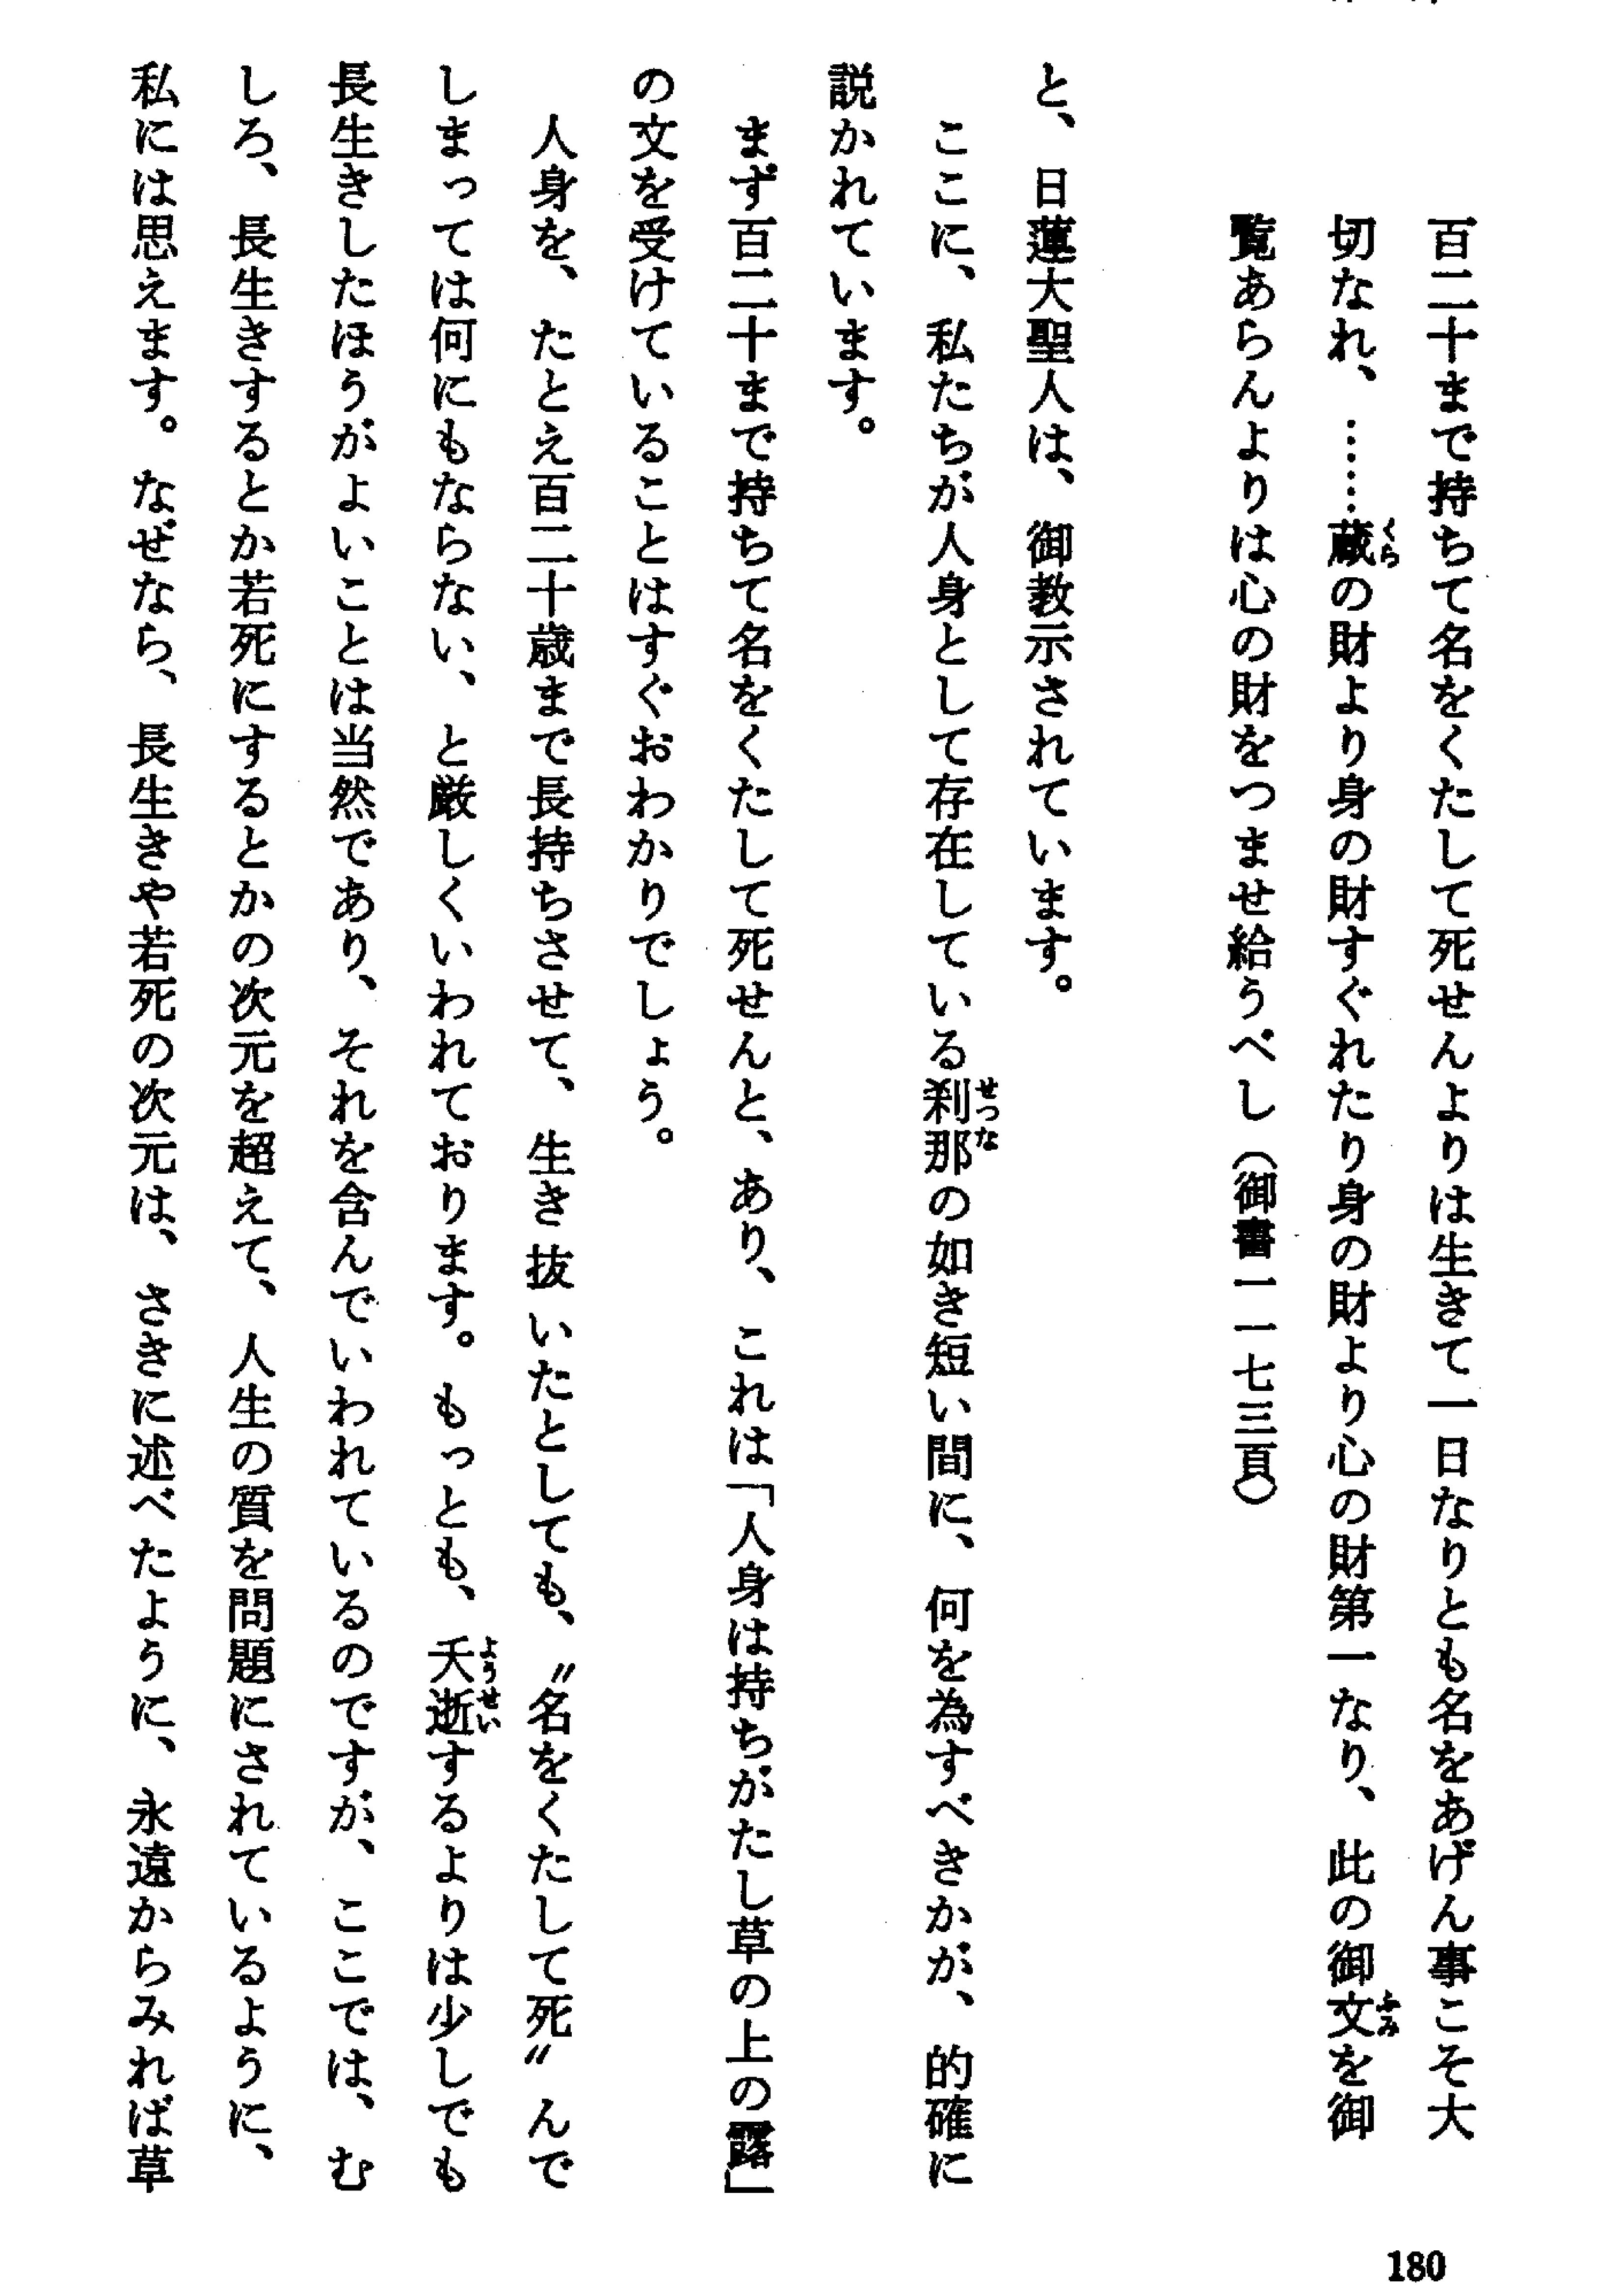 百二十まで持ちて名をくたして死せんよりは生きて一日なりとも名をあげん事こそ大
切なれ、……蔵の財より身の財すぐれたり身の財より心の財第一なり、此の御文を御
覧あらんよりは心の財をつませ給うべし（御書一一七三頁）
と、日蓮大聖人は、御教示されています。
ここに、私たちが人身として存在している刹那の如き短い間に、何を為すべきかが、的確に
説かれています。
まず百二十まで持ちて名をくたして死せんと、あり、これは「人身は持ちがたし草の上の露」
の文を受けていることはすぐおわかりでしょう。
人身を、たとえ百二十歳まで長持ちさせて、生き抜いたとしても、〝名をくたして死〟んで
しまっては何にもならない、と厳しくいわれております。もっとも、夭逝するよりは少しでも
長生きしたほうがよいことは当然であり、それを含んでいわれているのですが、ここでは、む
しろ、長生きするとか若死にするとかの次元を超えて、人生の質を問題にされているように、
私には思えます。なぜなら、長生きや若死の次元は、さきに述べたように、永遠からみれば草
180